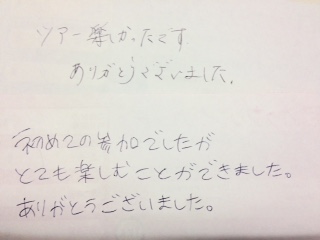 ツアー楽しかったです
ありがとうございました。
初めての参加でしたが
とても楽しむことができました。
ありがとうございました。